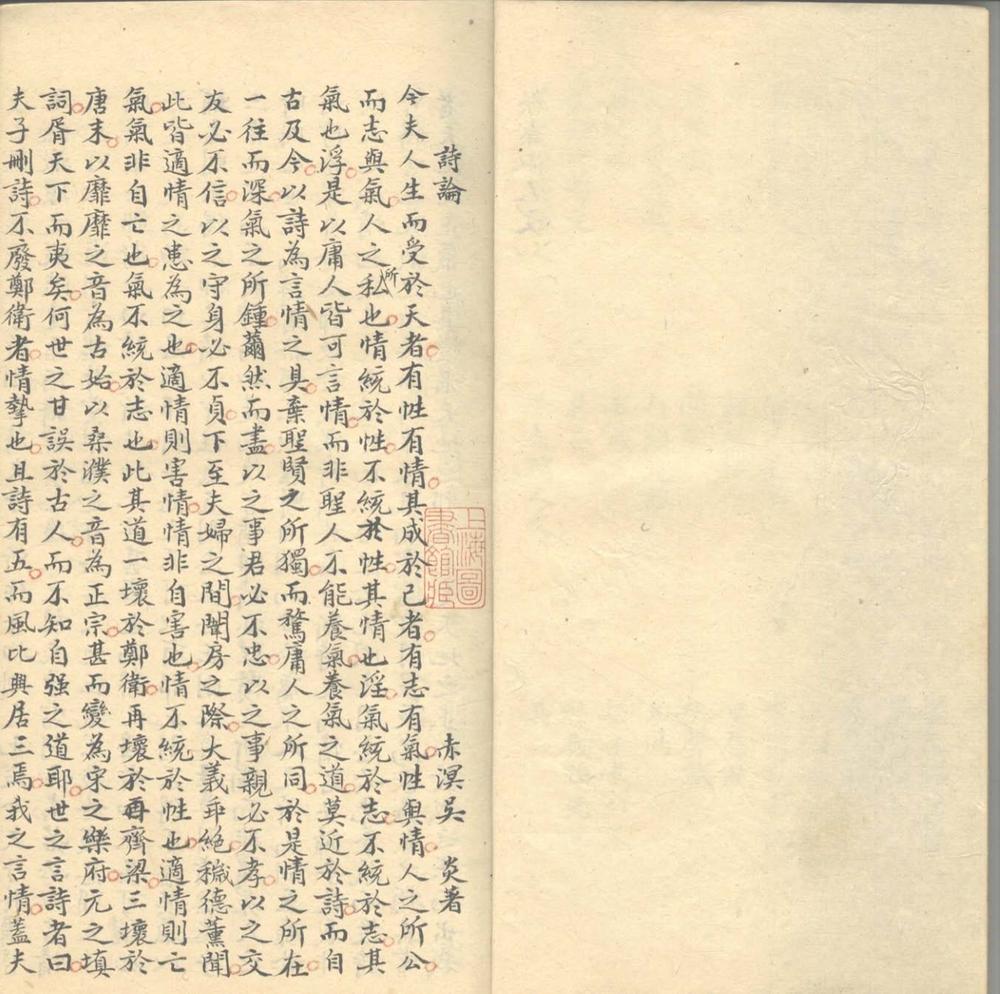 詩論 赤溟吳 炎著
今夫人生而受於天者有性有情其成於己者有志有氣性與情人之所公
而志與氣人之所私也情統於性不統於性其情也淫氣統於志不統於志其
氣也浮是以庸人皆可言情而非聖人不能養氣養氣之道莫近於詩而自
古及今以詩為言情之具棄聖賢之所獨而騖庸人之所同於是情之所在
一往而深氣之所鍾薾然而盡以之事君必不忠以之事親必不孝以之交
友必不信以之守身必不貞下至夫婦之間闈房之際大義乖絕穢德薰聞
此皆適情之患為之也適情則害情情非自害也情不統於性也適情則亡
氣氣非自亡也氣不統於志也此其道一壞於鄭衛再壞於齊梁三壞於
唐末以靡靡之音為古始以桑濮之音為正宗甚而變為宋之樂府元之填
詞胥天下而夷矣何世之甘誤於古人而不知自强之道耶世之言詩者曰
夫子刪詩不廢鄭衛者情摯也且詩有五而風比興居三焉我之言情蓋夫
上海圖
書館藏